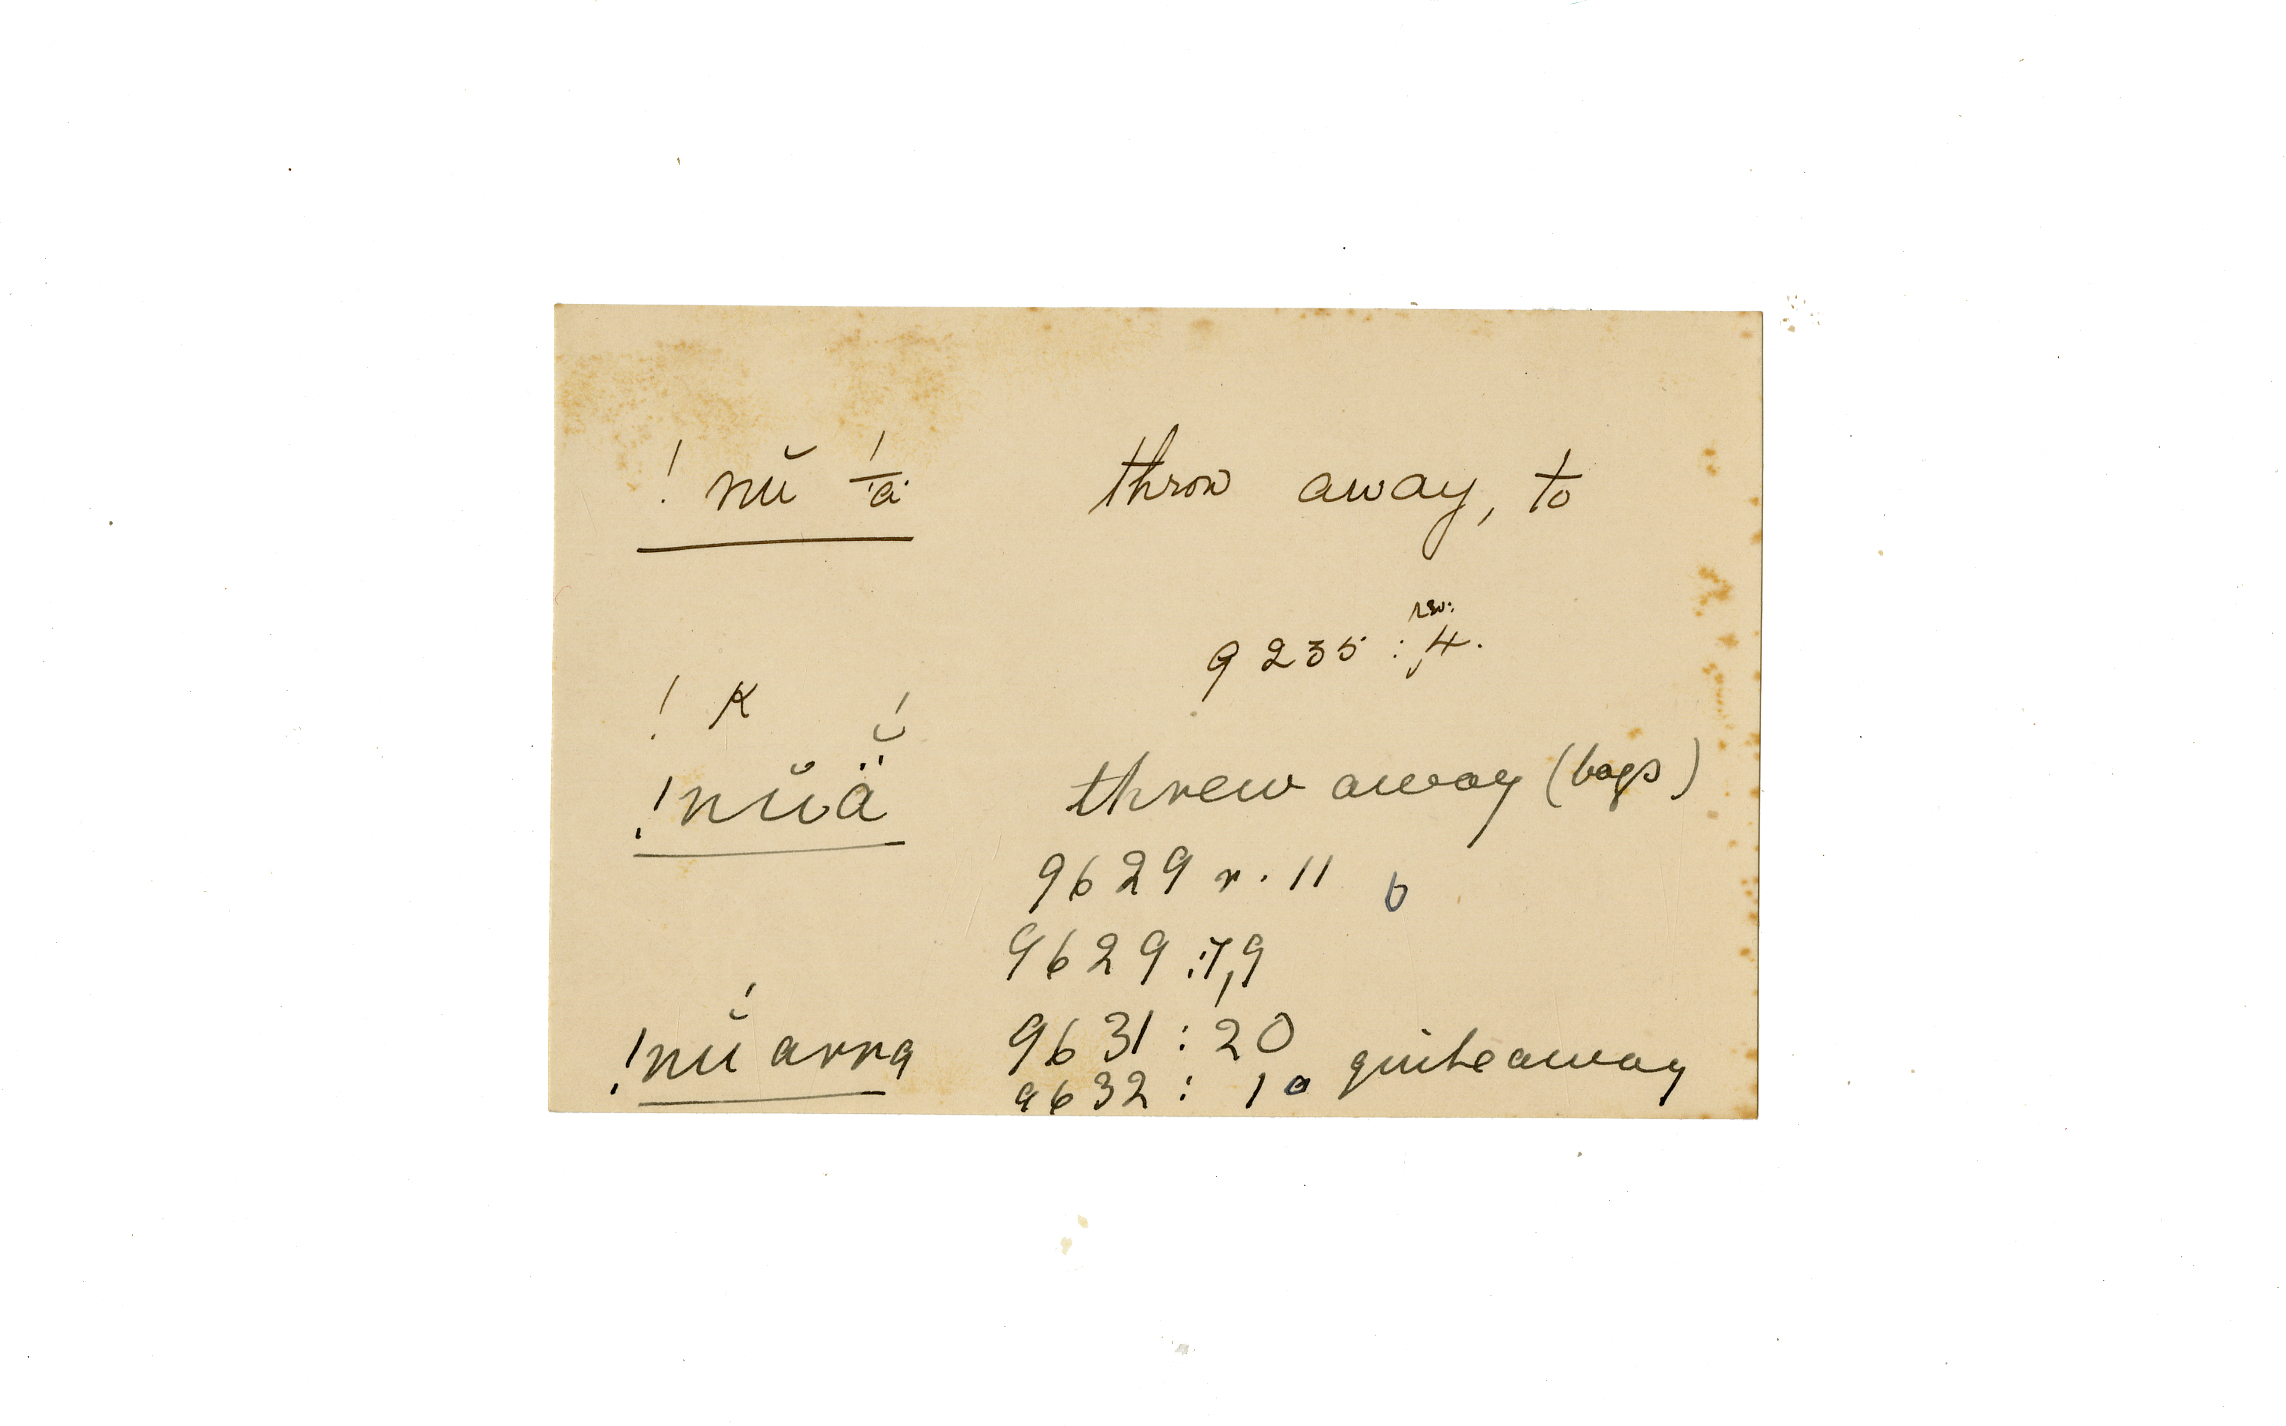 ! nŭ ¯́ä throw away, to
9235 : rev: 4.
! K
!nŭä̆́ threw away (bags)
9629 r. 11 b
9629 :7,9
!nŭ́arra 9631 : 20 quite away
9632 : 10